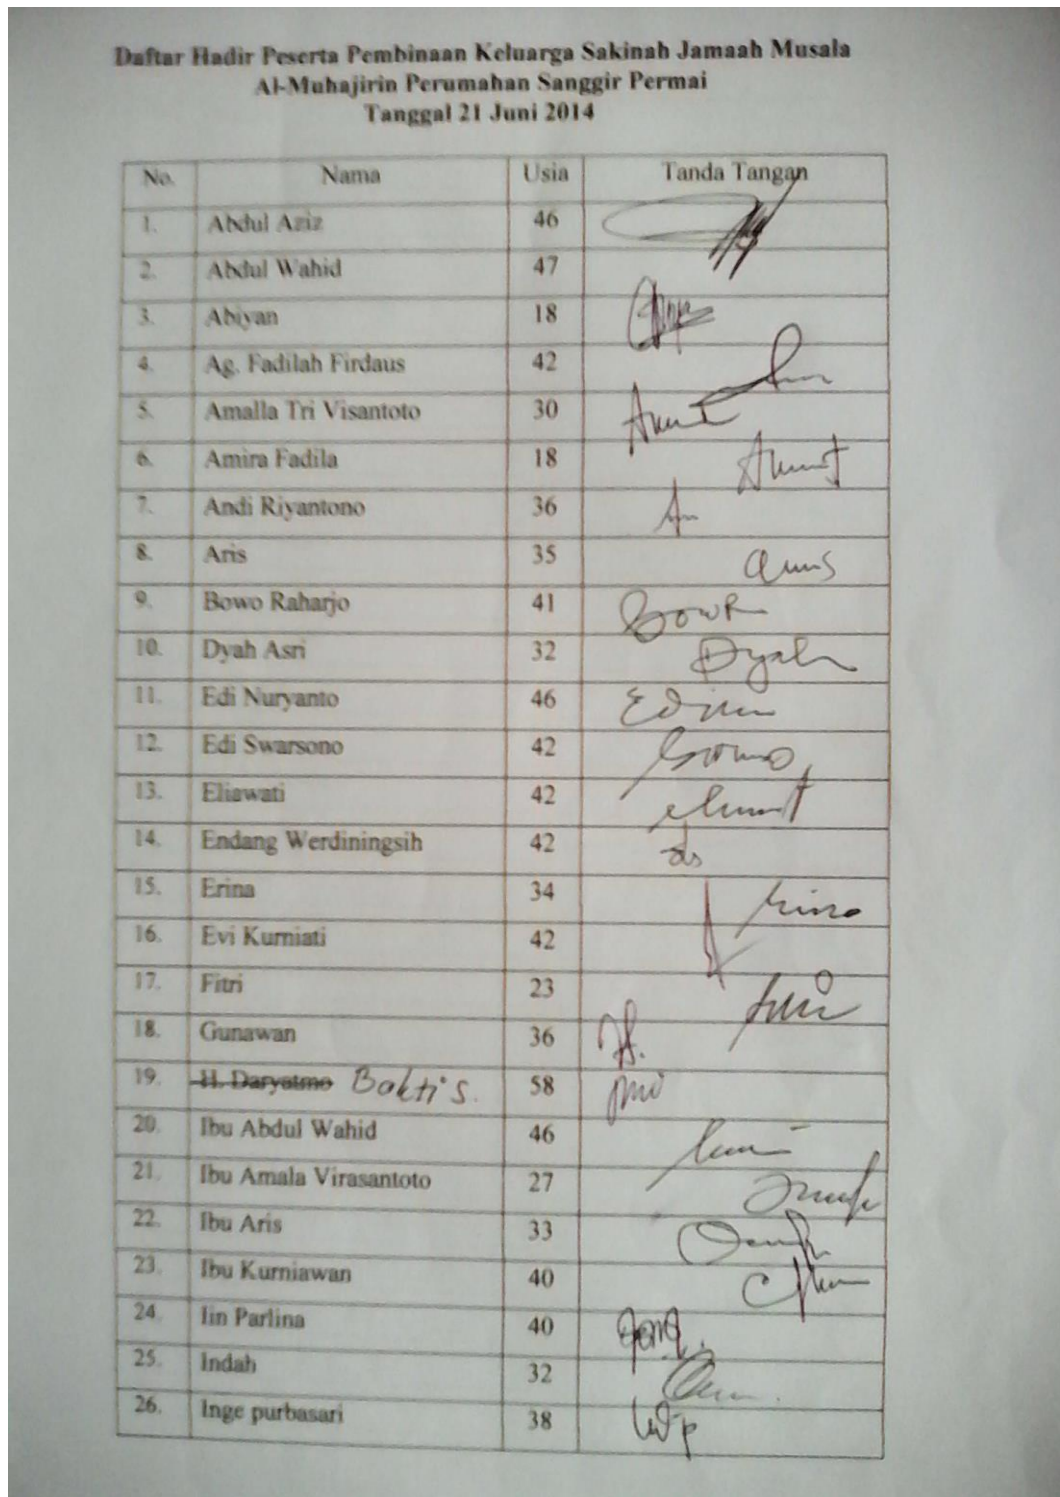 Daftar Hadir Peserta Pembinaan Keluarga Sakinah Jamaah Musala
Al-Muhajirin Perumahan Sanggir Permai
Tanggal 21 Juni 2014
No. Nama Usia Tanda Tangan
1. Abdul Aziz 46
2. Abdul Wahid 47
3. Abiyan 18
4. Ag. Fadilah Firdaus 42
5. Amalla Tri Visantoto 30
6. Amira Fadila 18
7. Andi Riyantono 36
8. Aris 35
9. Bowo Raharjo 41
10. Dyah Asri 32 Dyah
11. Edi Nuryanto 46
12. Edi Swarsono 42
13. Eliawati 42
14. Endang Werdiningsih 42
15. Erina 34
16. Evi Kurniati 42
17. Fitri 23
18. Gunawan 36
19. H. Daryatmo Bakti S. 58
20. Ibu Abdul Wahid 46
21. Ibu Amala Virasantoto 27
22. Ibu Aris 33
23. Ibu Kurniawan 40
24. Iin Parlina 40
25. Indah 32
26. Inge purbasari 38